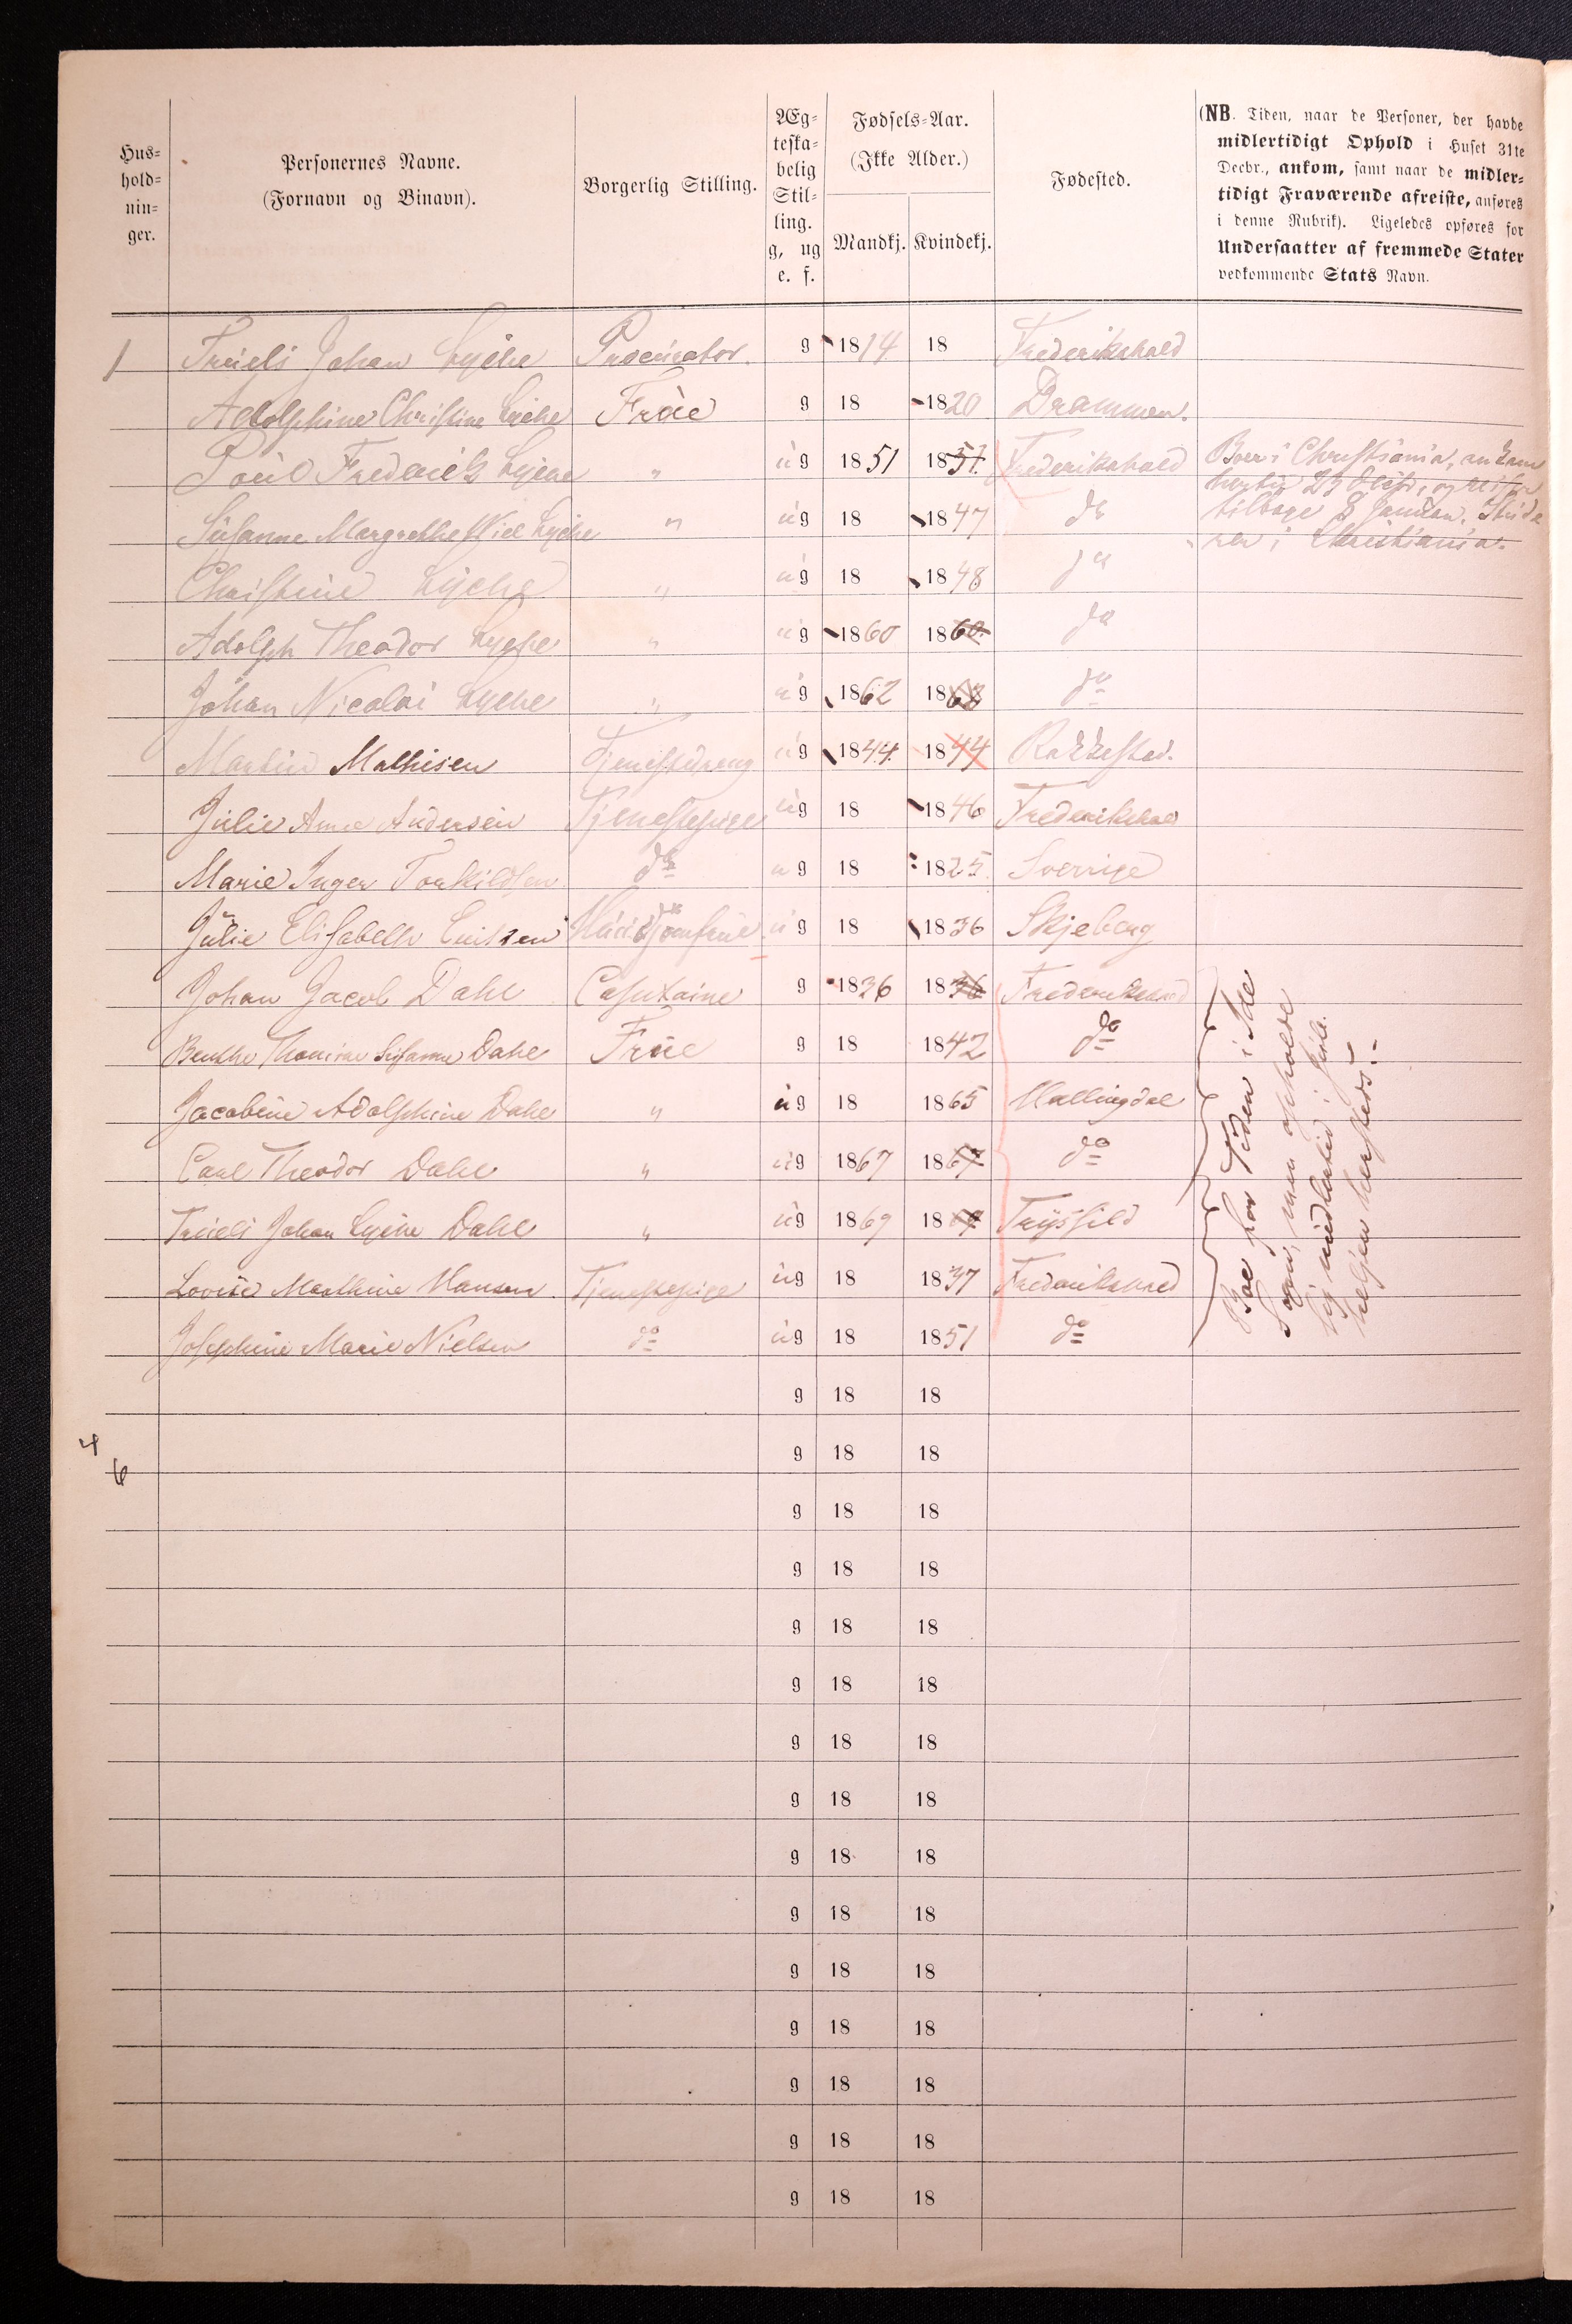 Hus-
hold-
nin-
ger.
Personernes Navne.
(Fornavn og Binavn).
Borgerlig Stilling.
Æg-
teska-
belig
Stil-
ling.
g, ug
e. f.
Fødsels-Aar.
(Ikke Alder.)
Mandkj. Kvindekj.
Fødested.
(NB. Tiden, naar de Personer, der havde
midlertidigt Ophold i Huset 31te
Decbr., ankom, samt naar de midler-
tidigt Fraværende afreiste, anføres
i denne Rubrik). Ligeledes opføres for
Undersaatter af fremmede Stater
vedkommende Stats Navn.
1 Truels Johan Lyche Procurator. g 1814 18 Frederikshald
Adolphine Christine Lyche Frue g 18 1820 Drammen.
Poul Frederik Lyche " ug 1851 1851 Frederikshald Boer i Christiania, ankom
hertil 23 Decbr, og reiser
Susanne Margrethe Lyche " ug 18 1847 do tilbage 8 Januar. Stude
rer i Christiania.
Christine Lyche " ug 18 1848 do
Adolph Theodor Lyche " ug 1860 1860 do
Johan Nicolai Lyche " ug 1862 1862 do
Martin Mathisen Tjenestedreng ug 1844 1844 Rakkestad.
Julie Anne Andersen Tjenestepige ug 18 1846 Frederikshald
Marie Inger Torkildsen do ug 18 1825 Sverrige
Julie Elisabeth Huusjomfrue ug 18 1836 Skjeberg
Johan Jacob Dahl Capitaine g 1836 1836 Frederikshald
Benthe Thomine Susanne Dahl Frue g 18 1842 do
Jacobine Adolphine Dahl " ug 18 1865 Hallingdal
Carl Theodor Dahl " ug 1867 1867 do
Truels Johan Lyche Dahl " ug 1869 1869 Trysild
Lovise Mathine Hansen Tjenestepige ug 18 1837 Frederikshald
Josephine Marie Nielsen do ug 18 1851 do
Boe for Tiden i Ide
Sogn, men opholde
sig midlertid i Jule
helgen hersteds.
g 18 18
4
g 18 18
6
g 18 18
g 18 18
g 18 18
g 18 18
g 18 18
g 18 18
g 18 18
g 18 18
g 18 18
g 18 18
g 18 18
g 18 18
g 18 18